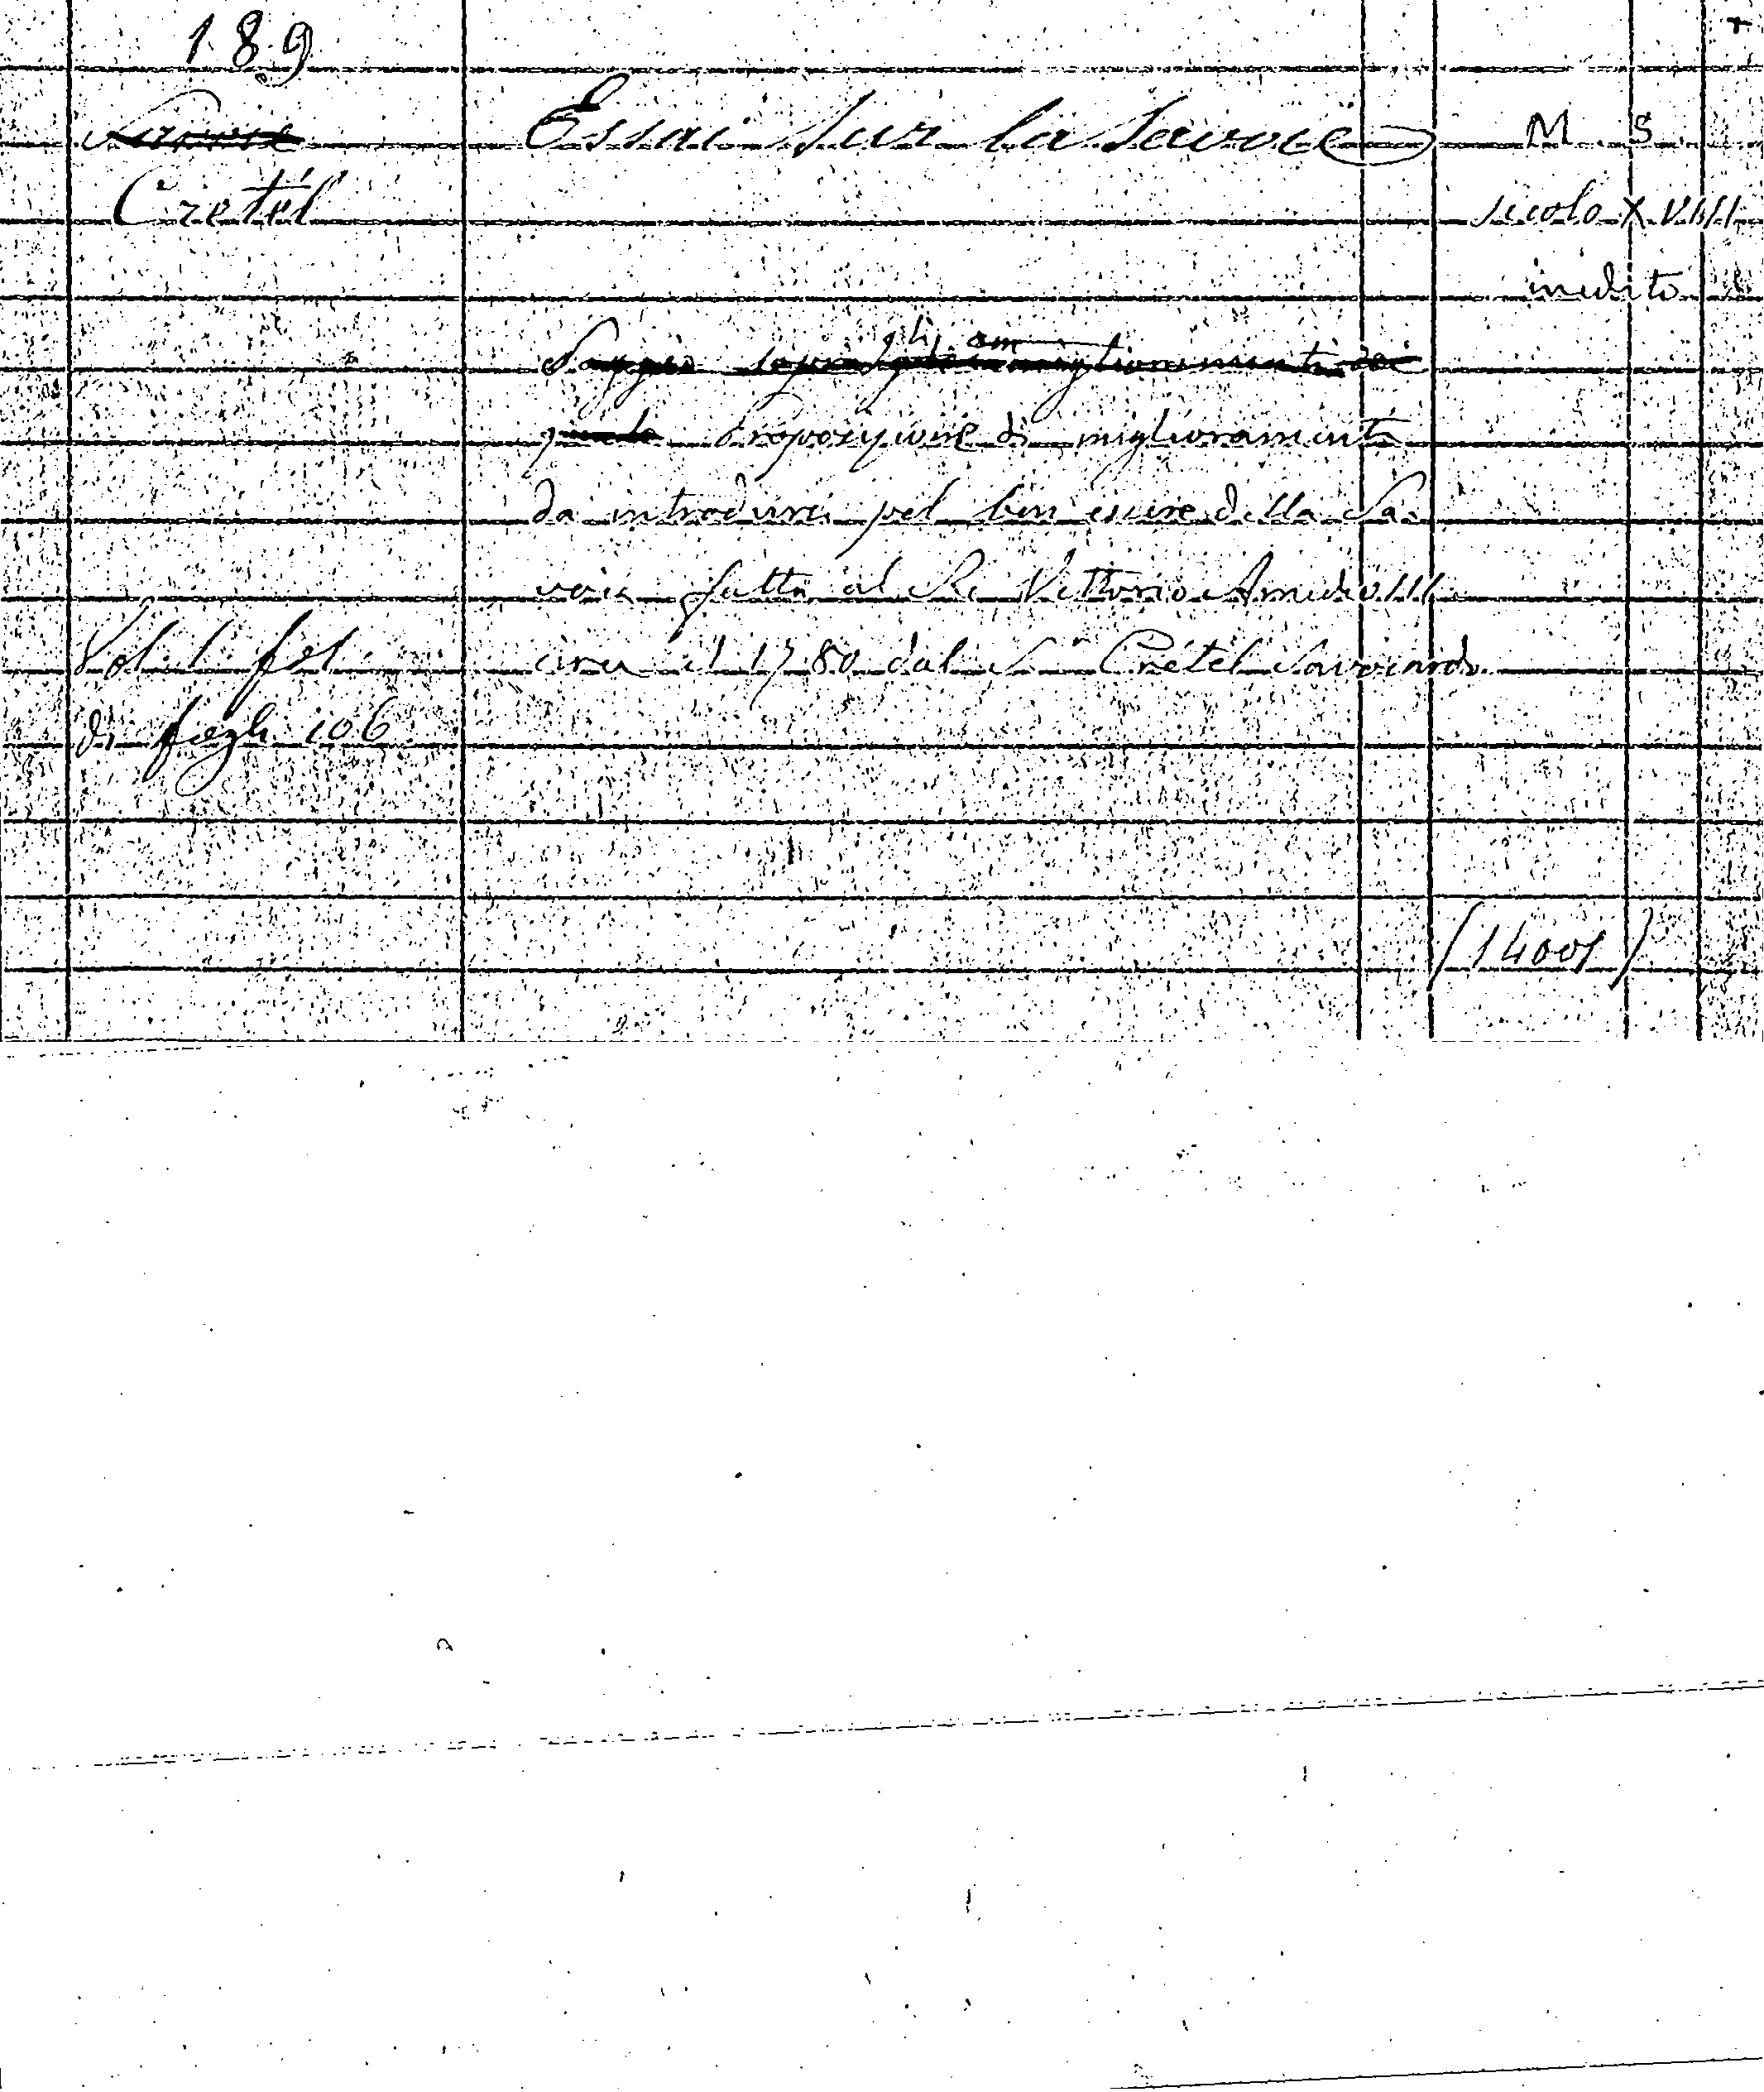 189
Savoie Essai sur la Savoie M. S.
Cretèl secolo XVIII
inedito
gli am
Saggio sopra miglioramenti dei
Proposizione di miglioramenti
da introdursi pel ben essere della Sa-
voia fatta al Re Vittorio Amedeo III
Vol. 1. fol circa il 1780 dal S. Crétel Savoiardo.
di fogli 106
(14001)